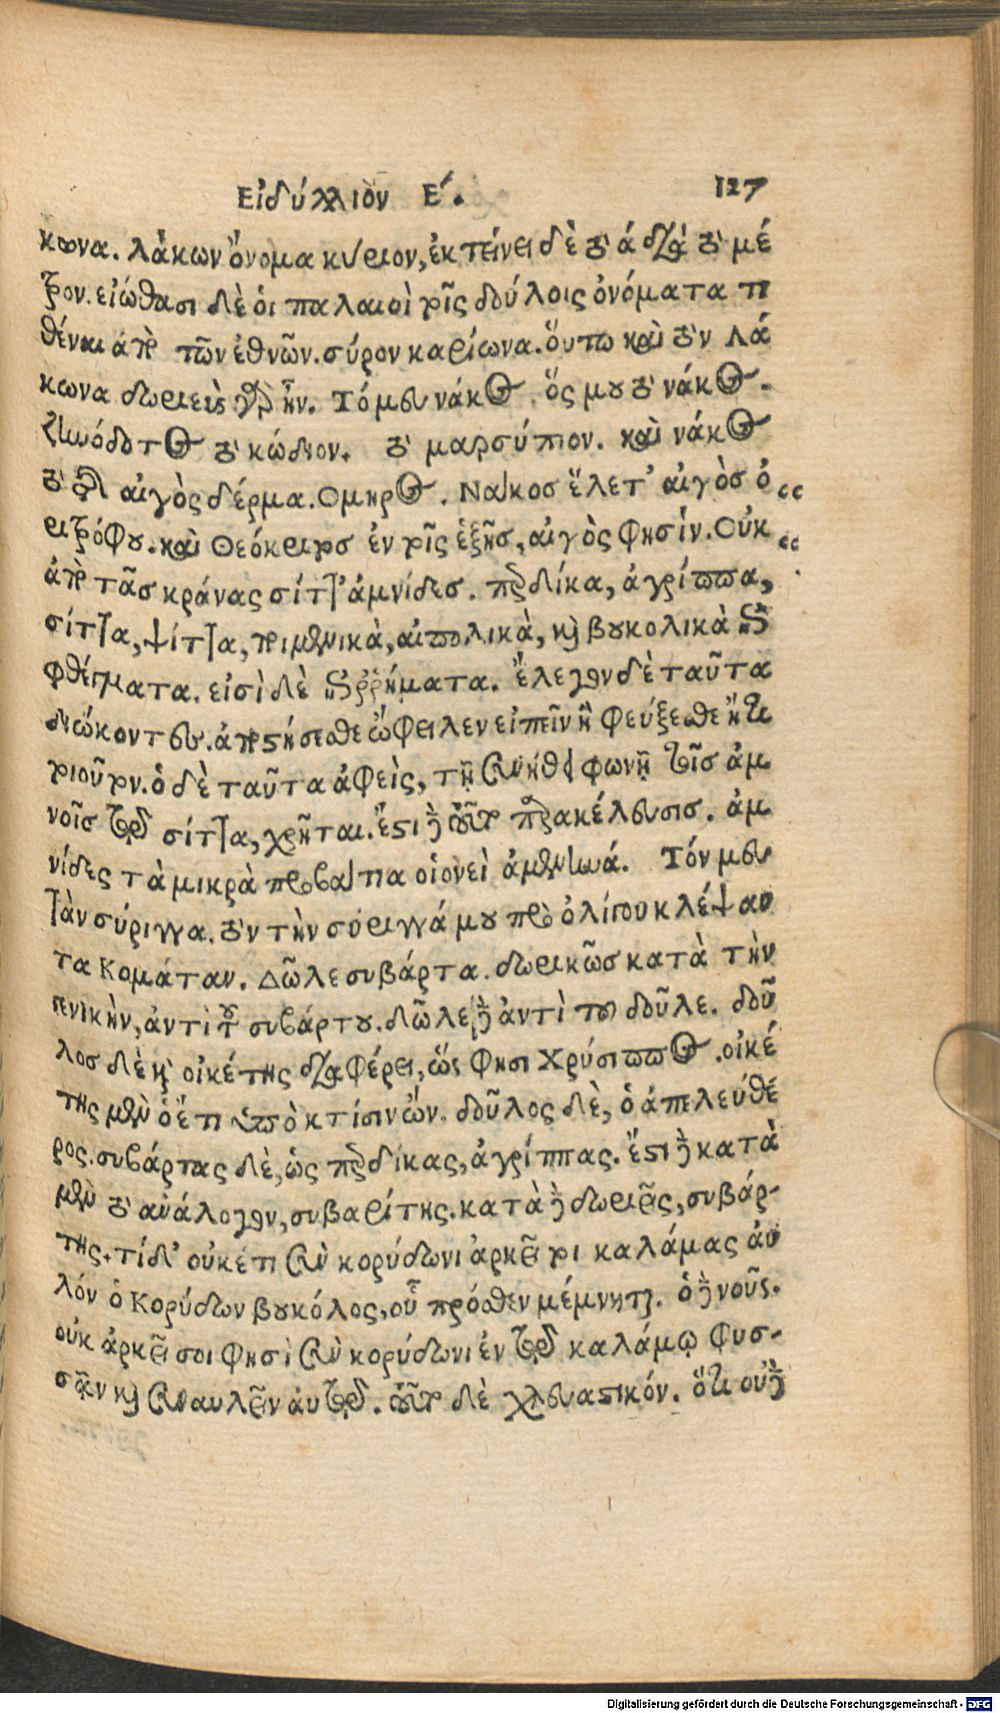 Εἰδύλλιον Ε΄. 127
κωνα. λάκων ὄνομα κύριον, ἐκτείνει δὲ τὸ ά διὰ τὸ μέ
τρον. εἰώθασι δὲ οἱ παλαιοὶ τοῖς δούλοις ὀνόματα τι
θέναι ἀπὸ τῶν ἐθνῶν. σύρον καρίωνα. οὕτω καὶ τὸν λά
κωνα δωριεὺς γὰρ ἦν. Τόμευ νάκος. ὅς μου τὸ νάκος.
τὸ κώδιον. τὸ μαρσύπιον. καὶ νάκος
τὸ τῆς αἰγὸς δέρμα. Ομηρος. Νάκοσ ἕλετ' αἰγὸσ ὀ
ριτρόφου. καὶ Θεόκριτοσ ἐν τοῖς ἑξῆσ, αἰγὸς φησίν. Οὐκ
ἀπὸ τᾶσ κράνας σίττ' ἀμνίδεσ. πρὸς δίκα, ἀγρίππα,
σίττα, ψίττα, ποιμενικὰ, αἰπολικὰ, καὶ βουκολικὰ
φθέγματα. εἰσὶ δὲ ἐπιρρήματα. ἔλεγον δὲ ταῦτα
διώκοντευ. ἀποστήσεσθε ὤφειλεν εἰπεῖν ἢ φεύξεσθε ἤ τι
τοιοῦτον. ὁ δὲ ταῦτα ἀφεὶς, τῇ συνήθει φωνῇ τοῖσ ἀμ
νοῖσ τῷ σίττα, χρῆται. ἔστι γὰρ τοῦτο παρακέλευσισ. ἀμ
νίδες τὰ μικρὰ προβάτια οἱονεὶ ἀμενηνά. Τόν μευ
τὰν σύριγγα. τὸν τὴν σύριγγά μου πρὸ ὀλίγου κλέψαν
τα Κομάταν. Δῶλε συβάρτα. δωρικῶσ κατὰ τὴν
γενικὴν, ἀντὶ τοῦ συβάρτου. δῶλε γὰρ ἀντὶ τοῦ δοῦλε. δοῦ
λος δὲ καὶ οἰκέτης διαφέρει, ὥς φησι Χρύσιππος. οἰκέ
της μὲν ὁ ἔτι ὑπὸ κτίσιν ὤν. δοῦλος δὲ, ὁ ἀπελεύθέ
ρος. συβάρτας δὲ, ὡς πρὸς δίκας, ἀγρίππας. ἔστι γὰρ κατὰ
μὲν τὸ ἀνάλογον, συβαρίτης. κατὰ γὰρ δωριεῖς, συβάρ-
της. τί δ' οὐκέτι σὺν κορύδωνι ἀρκεῖ τοι καλάμας αὐ
λόν ὁ Κορύδων βουκόλος, οὗ πρόσθεν μέμνηται. ὁ γὰρ νοῦς.
οὐκ ἀρκεῖ σοι φησὶ σὺν κορύδωνι ἐν τῷ καλάμῳ φυσ-
σᾷν καὶ συναυλεῖν αὐτῷ. τοῦτο δὲ χλευαστικόν. ὅτι οὐ γὰρ
Digitalisierung gefördert durch die Deutsche Forschungsgemeinschaft - DFG